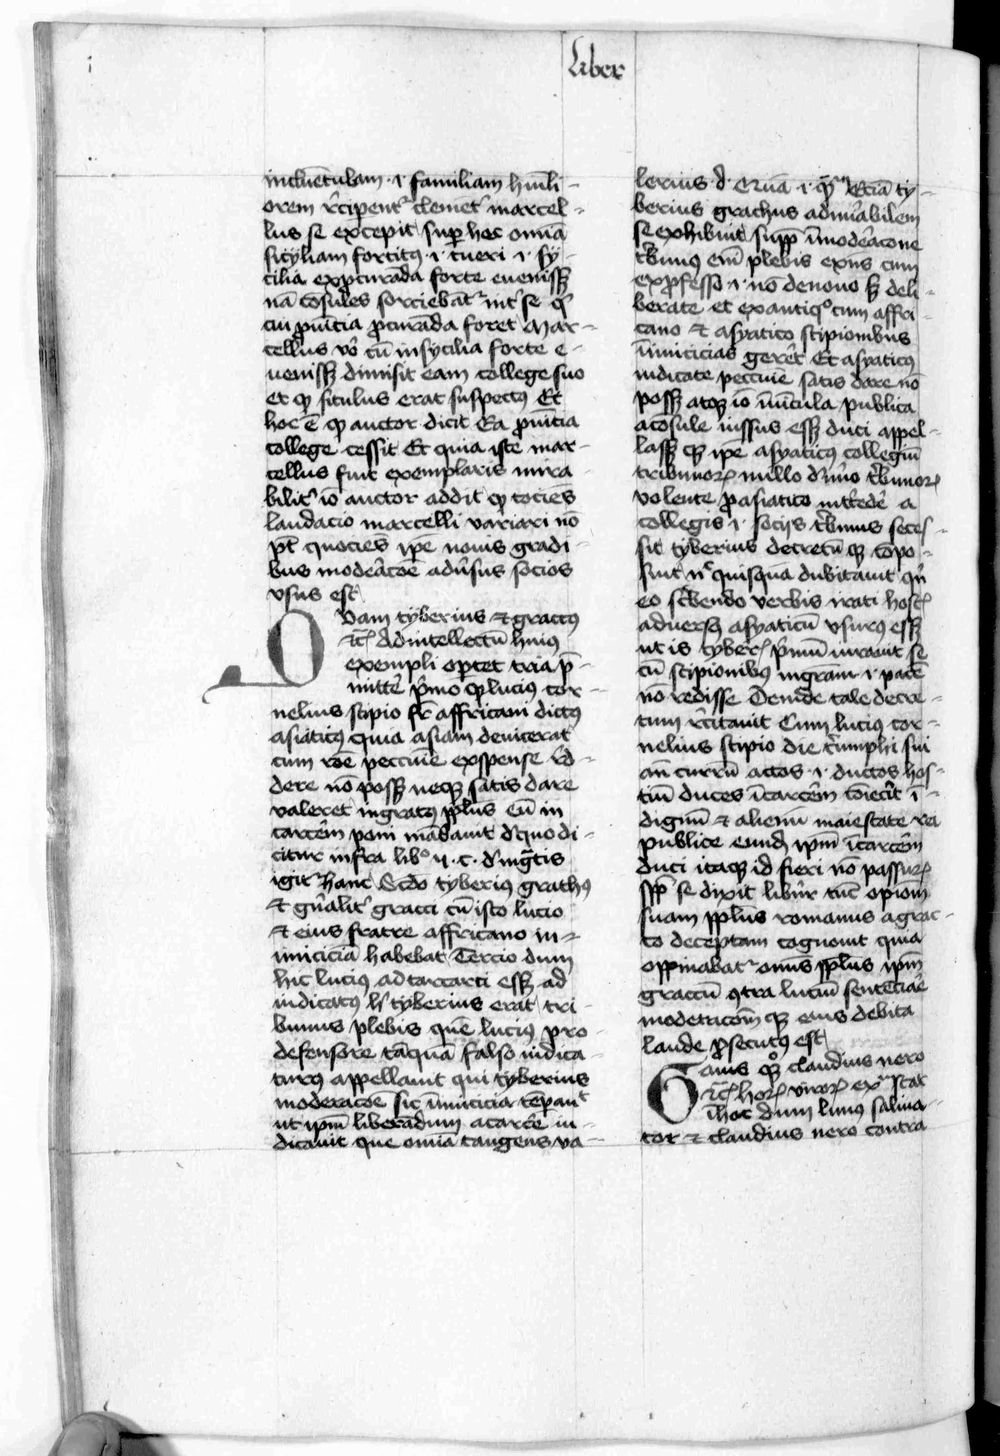 Liber
in clientulam ·i· familiam humili-
orem recipienter clementer marcel-
lus se excepit super hoc omnia
sicyliam fortitus ·i· tueri ·i· sy-
cilia exprocuranda forte euenisset
nam consules sorciebantur inter se que
cui prouincia procuranda foret Mar-
cellus vero cum in sycilia forte e-
uenisset dimisit eam college suo
et quod siculus erat suspectus Et
hoc est quod auctor dicit Ea prouincia
college cessit Et quia iste mar-
cellus fuit exemplaris mira-
biliter ideo auctor addit quod tociens
laudacio marcelli variari non
potest quociens ipse nouis gradi-
bus moderacione aduersus socios
vsus est
Quam tyberius et graccus
etc Ad intellectum huius
exempli oportet tria pre-
mittere primo quod lucius cor-
nelius scipio frater affricani dictus
asiaticus quia asiam deuicerat
cum racionem peccunie expense red-
dere non posset neque satis dare
valeret ingratus populus eum in
carcerem poni mandauit de quo di-
citur infra libro v c de ingratis
igitur hanc Secundo tyberius grachus
et generaliter gracci cum isto lucio
et eius fratre affricano in-
imicicia habebat Tercio dum
hic lucius ad carcarti esset ad
iudicatus licet tyberius erat tri-
bunus plebis quem lucius pro
defensore tamquam falso iudica-
turus appellauit qui tyberius
moderacione sic inimicicia temperauit
ut ipsum liberandum a carcere iu-
dicauit que omnia tangens va-
lerius d Verum ·i· quam Eciam ty-
berius grachus admirabilem
se exhibuit supple in moderacione
tribunus enim plebis exius cum
ex professo ·i· non denouo sed deli-
berate et ex antiquo cum affri-
cano et asyatico scipionibus
inimicicias gereret Et asyaticus
iudicate peccunie satis dare non
posset atque ideo in uincula publica
a consule iussus esset duci appel-
lasset que ipse asyaticus collegium
tribunorum nullo domino tribunorum
volente pro asiatico intercedere a
collegis ·i· socijs tribunus seces-
sit tyberius decretum que compo-
suit nec quisquam dubitauit quin
eo scribendo verbis irati hostis
aduersus asyaticum vsurus esset
ut is tyberius primum iurauit se
cum scipionibus in graciam ·i· pacem
no redisse Deinde tale decre-
tum recitauit Cum lucius cor-
nelius scipio die triumphi sui
ante currum actos ·i· ductos hos-
tium duces in carcerem coniecerit in-
dignum et alienum maiestate rei
publice eundem ipsum in carcerem
duci itaque id fieri non passurum
semper se dixit libenter tunc opinionem
suam populus romanus a grac-
co deceptam cognouit quia
oppinabatur omnis populus ipsum
graccum contra lucium sentenciare
moderacionem que eius debita
laude prosecutus est
Gaius quoque claudius nero
etc horum virorum exemplum stat
in hoc dum liuius salina-
tor et claudius nero contra